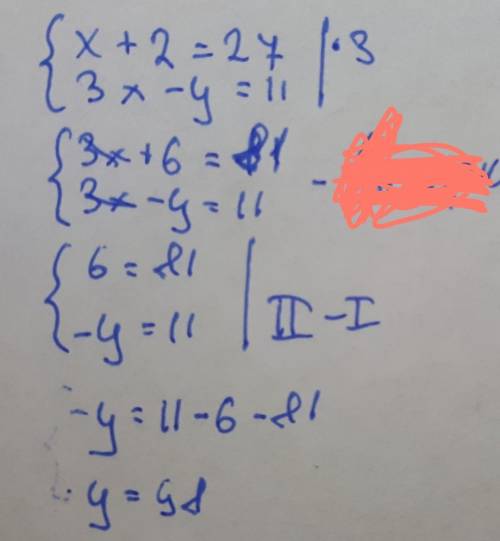 x + 2 = 27 | · 3
3x - y = 11
3x + 6 = 81
3x - y = 11 -
6 = 81
-y = 11 | II - I
-y = 11 - 6 - 81
y = 98